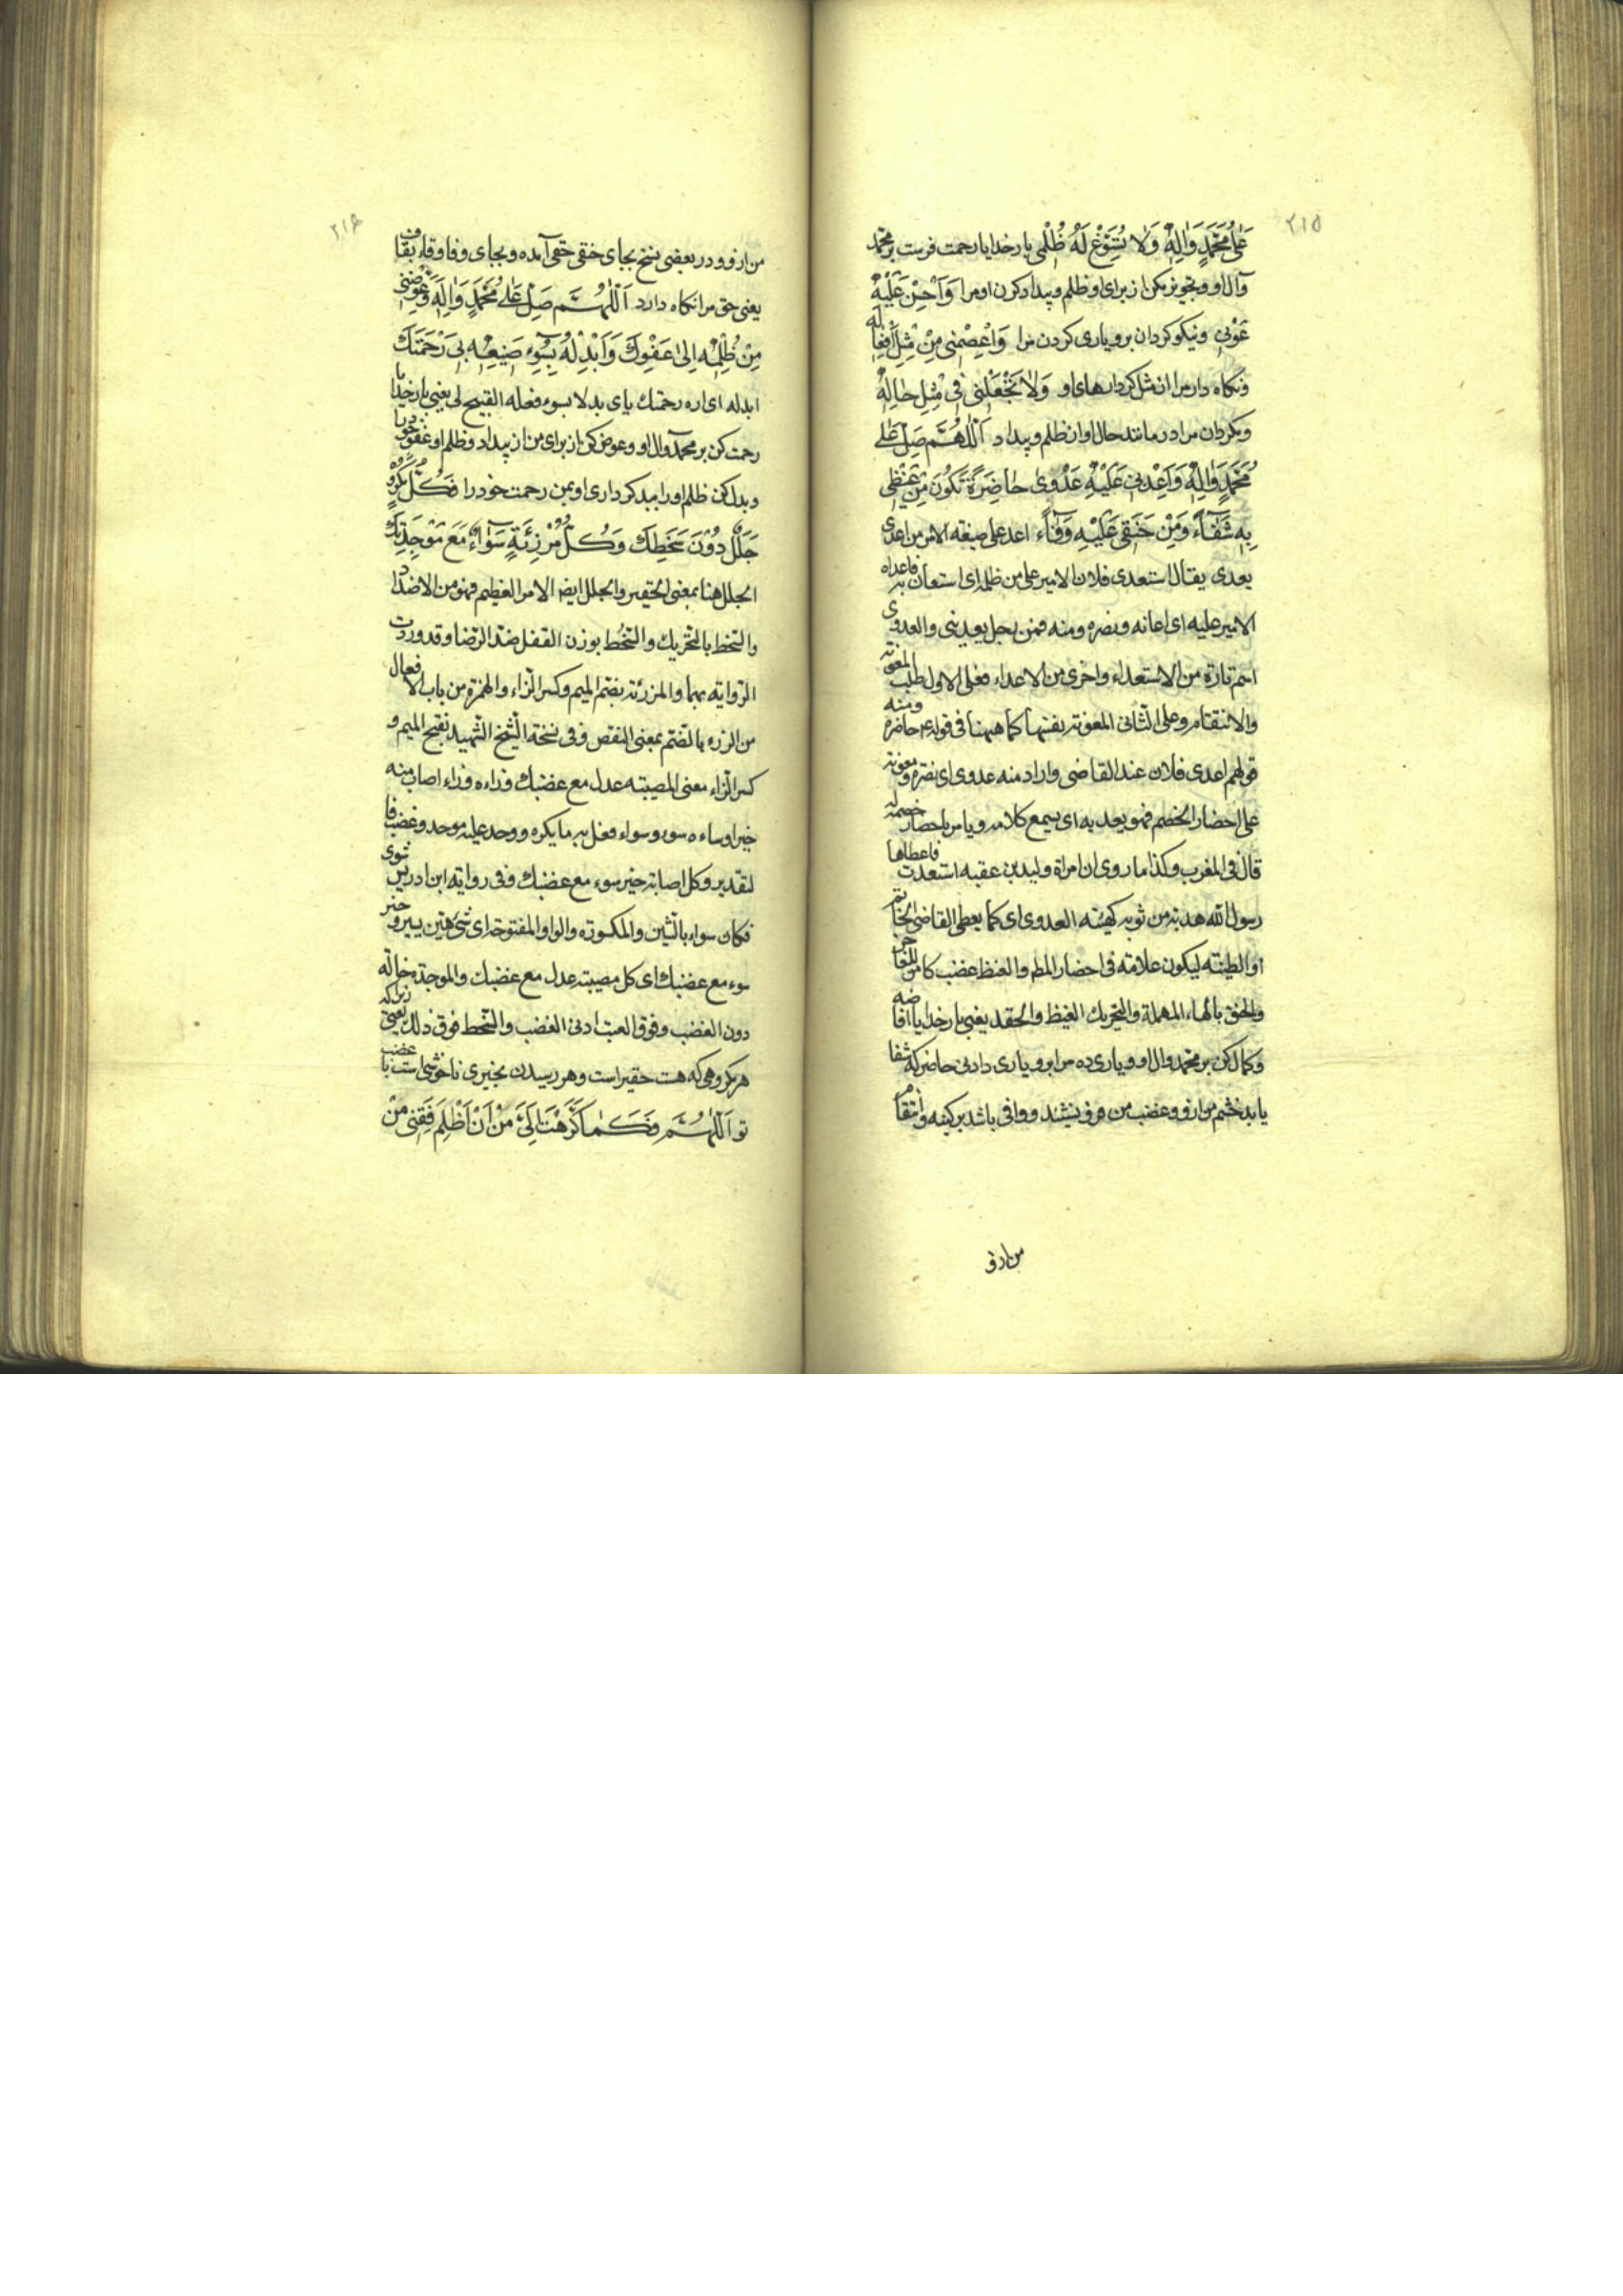 ٢١٥
عَلٰی مُحَمَّدٍ وَاٰلِهِ وَلَا تُسَوِّغْ لَهُ ظُلْمِي بار خدایا رحمت فرست بر محمد
وآل او وتجویز مکن از برای او ظلم وبیداد کردن او مرا وَاَحْسِنْ عَلَيْهِ
عَوْنِي ونیکو کردان برو یاری کردن مرا وَاعْصِمْنِي مِنْ مِثْلِ اَفْعَالِهِ
ونکاه دار مرا از مثل کردارهای او وَلَا تَجْعَلْنِي فِي مِثْلِ حَالِهِ
ومکردان مرا در مانند حال او از ظلم وبیداد اَللّٰهُمَّ صَلِّ عَلٰی
مُحَمَّدٍ وَاٰلِهِ وَاَعْدِنِي عَلَيْهِ عَدْوٰی حَاضِرَةً تَكُونُ مِنْ غَيْظِي
بِهِ شَفَاءً وَمِنْ حَنَقِي عَلَيْهِ وَفَاءً اعد علی صیغة الامر من اعدی
یعدی یقال استعدی فلان الامیر علی من ظلمه ای استعان به فاعداه
الامیر علیه ای اعانه ونصره ومنه فمن رجل یعدینی والعدوی
اسم تارة من الاستعداء واخری من الاعداء فعلی الاول طلب المعونة
والانتقام وعلی الثانی المعونة نفسها کما ههنا فی قوله ع حاضرة ومنه
قولهم اعدی فلان عند القاضی واراد منه عدوی ای نصرة ومعونة
علی احضار الخصم فهو یعدیه ای یسمع کلامه ویامر باحضار خصمه
قال فی المغرب وکذا ما روی ان امراة ولید بن عقبه استعدت فاعطاها
رسول الله هدبة من ثوبه کهیئة العدوی ای کما یعطی القاضی الخاتم
او الطینة لیکون علامة فی احضار المطلوب والغیظ غضب کامن للعاجز
والحنق بالحاء المهملة والتحریك الغیظ والحقد یعنی بار خدایا افاضه
وکمال کن بر محمد وال او ویاری ده مرا برو یاری دادنی حاضر که شفا
یابد خشم من ازو وغضب من فرو نشیند ووافی باشد بر کینه وانتقام
من ازو
٢١٦
من ازو ودر بعضی نسخ بجای حنقی حقی آمده وبجای وفا وقاء بقاف
یعنی حق مرا نکاه دارد اَللّٰهُمَّ صَلِّ عَلٰی مُحَمَّدٍ وَاٰلِهِ وَعَوِّضْنِي
مِنْ ظُلْمِهِ اِلٰی عَفْوِكَ وَاَبْدِلْهُ بِسُوءِ صَنِيعِهِ بِي رَحْمَتَكَ
ابدله ای اره رحمتك بای بدلا بسوء فعله القبیح لی یعنی بار خدایا
رحمت کن بر محمد وال او وعوض کن از برای من از بیداد وظلم او عفو خود را
وبدل کن ظلم او را ببد کرداری او بمن رحمت خود را فَكُلُّ مَكْرُوهٍ
جَلَلٌ دُونَ سَخَطِكَ وَكُلُّ مُرْزِئَةٍ سَوَاءٌ مَعَ مَوْجِدَتِكَ
الجلل هنا بمعنی الحقیر والجلل ایضا الامر العظیم فهو من الاضداد
والسخط بالتحریك والسخط بوزن القفل ضد الرضا وقد وردت
الروایة بهما والمرزئة بضم المیم وکسر الزاء والهمزة من باب الافعال
من الرزء بالضم بمعنی النقص وفی نسخة الشیخ الشهید بفتح المیم و
کسر الزاء معنی المصیبة عدل مع غضبك ورزاه رزاء اصاب منه
خیرا وساءه سوء وسواء فعل به ما یکره ووجد علیه موجد وغضب فا
لتقدیر وکل اصابة خیر سوء مع غضبك وفی روایة ابن ادریس شوی
فکان سواء بالشین والمکسورة والواو المفتوحة ای شئ هین یسیر وخیر
سوء مع غضبك ای کل مصیبة عدل مع غضبك والموجدة حالة
دون الغضب وفوق العتب ادنی الغضب والسخط فوق ذلك یعنی زیراکه
هر مکروهی که هست حقیر است وهر رسیدن بچیزی ناخوشی است با غضب
تو اَللّٰهُمَّ فَكَمَا كَرَّهْتَ اِلَيَّ مِنْ اَنْ اَظْلِمَ فَقِنِي مِنْ